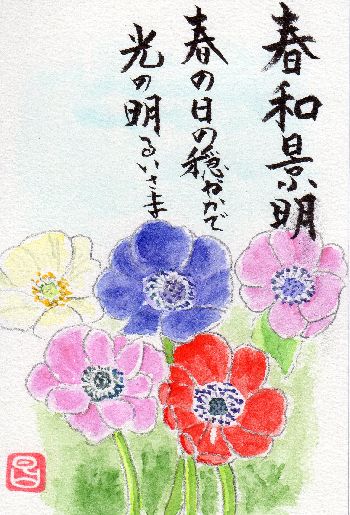 春和景明
春の日の穏やかで
光の明るいさま